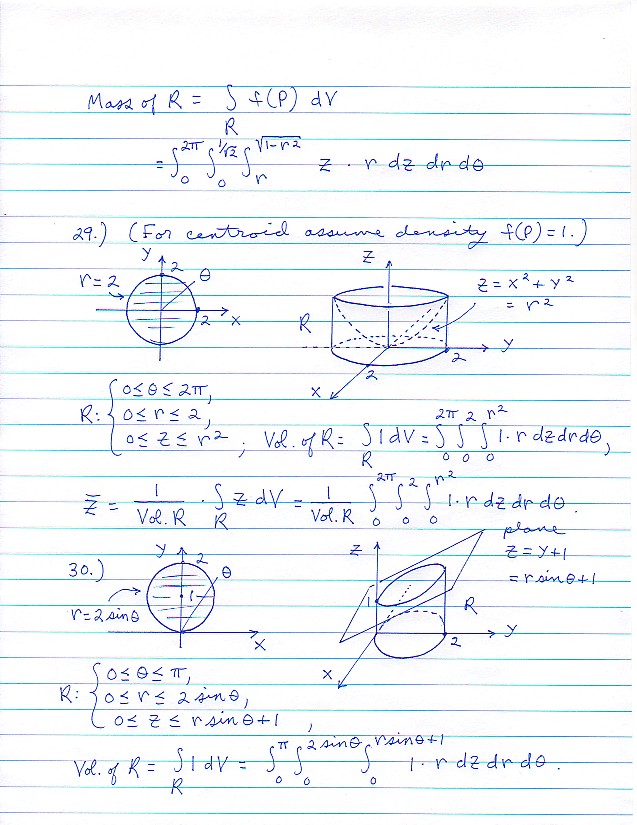 Mass of R = ∫ f(P) dV
R
= ∫ 2π 0 ∫ 1/√2 0 ∫ √1-r² r z · r dz dr dθ
29.) (For centroid assume density f(P)=1.)
y
2
θ
r=2
2
x
z
z = x² + y²
= r²
R
2
y
2
x
R: { 0≤θ≤2π,
0≤r≤2,
0≤z≤r² ; Vol. of R = ∫ R 1 dV = ∫ 2π 0 ∫ 2 0 ∫ r² 0 1·r dz dr dθ,
z̄ = 1/Vol. R · ∫ R z dV = 1/Vol. R ∫ 2π 0 ∫ 2 0 ∫ r² 0 1·r dz dr dθ.
30.)
y
2
θ
1
r=2 sinθ
x
z
plane
z = y+1
= r sinθ+1
1
R
2
y
x
R: { 0≤θ≤π,
0≤r≤ 2 sinθ,
0≤z≤ r sinθ+1 ,
Vol. of R = ∫ R 1 dV = ∫ π 0 ∫ 2 sinθ 0 ∫ r sinθ+1 0 1·r dz dr dθ.